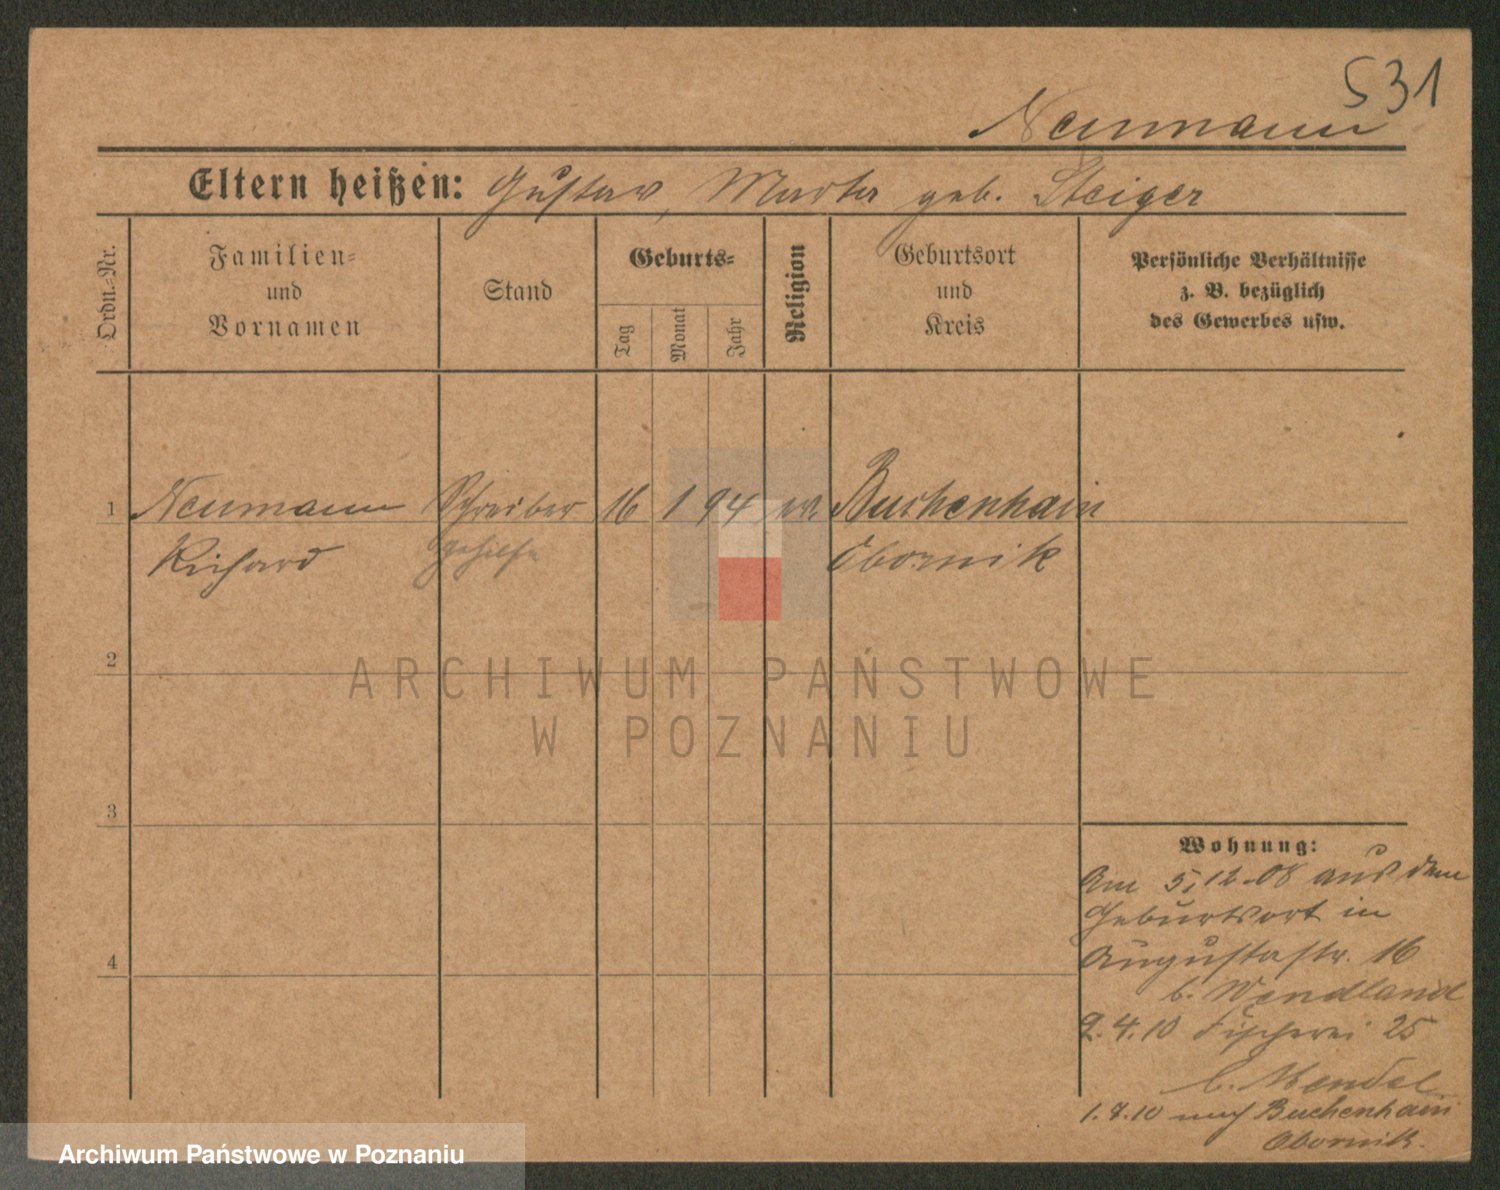 531
Neumann
Eltern heißen: Gustav, Marta geb. Steiger
Ordn.-Nr.
Familien-
und
Vornamen
Stand
Geburts-
Tag
Monat
Jahr
Religion
Geburtsort
und
Kreis
Persönliche Verhältnisse
z. B. bezüglich
des Gewerbes usw.
1 Neumann Schreiber 16 1 94 ev. Buchenhain
Richard gehilfe Obornik
2
ARCHIWUM PAŃSTWOWE
W POZNANIU
3
Wohnung:
Am 5.12.08 aus dem
Geburtsort in
Augustastr. 16
4
b. Wendland
2.4.10 Fischerei 25
b. Mendel
1.7.10 nach Buchenhain
Obornik.
Archiwum Państwowe w Poznaniu